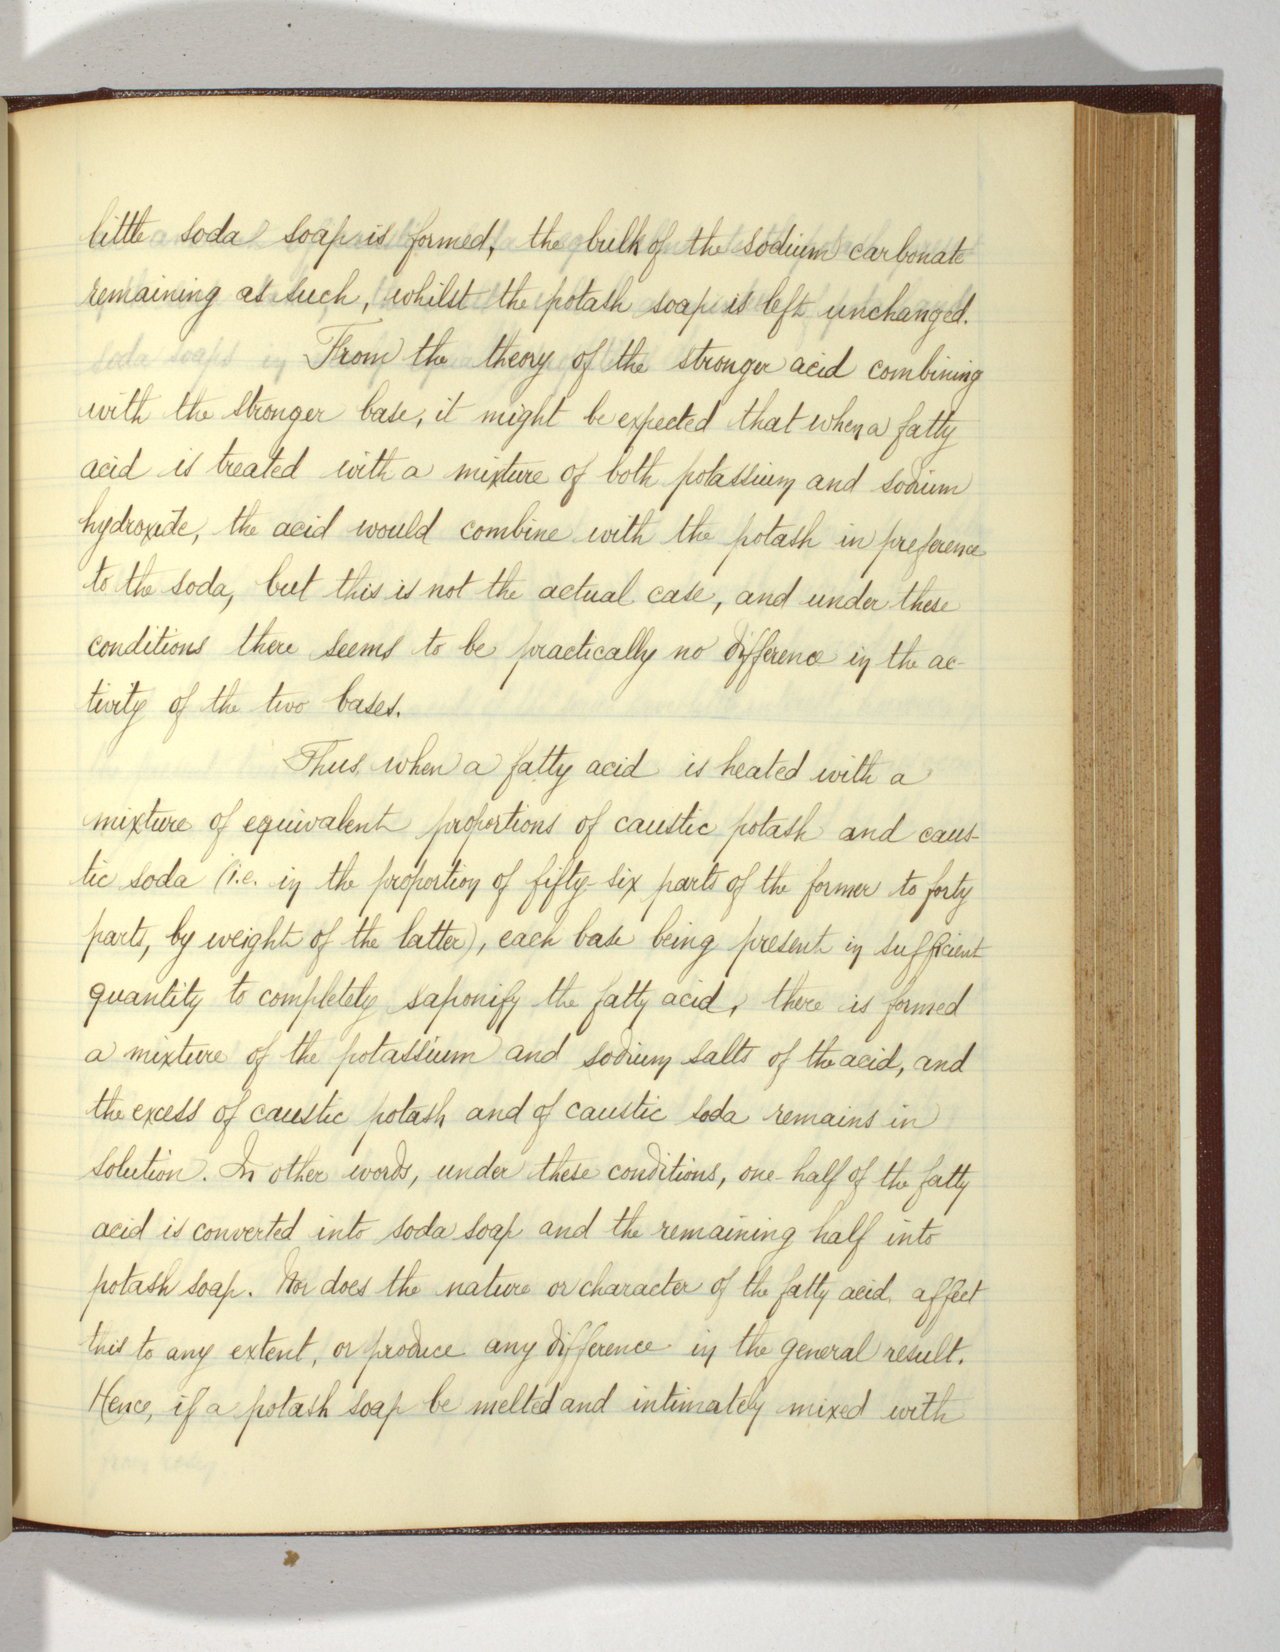 little soda soap is formed, the bulk of the sodium carbonate
remaining as such, whilst the potash soap is left unchanged.
From the theory of the stronger acid combining
with the stronger base, it might be expected that when a fatty
acid is treated with a mixture of both potassium and sodium
hydroxide, the acid would combine with the potash in preference
to the soda, but this is not the actual case, and under these
conditions there seems to be practically no difference in the ac-
tivity of the two bases.
Thus when a fatty acid is heated with a
mixture of equivalent proportions of caustic potash and caus-
tic soda (i.e. in the proportion of fifty-six parts of the former to forty
parts, by weight of the latter), each base being present in sufficient
quantity to completely saponify the fatty acid, there is formed
a mixture of the potassium and sodium salts of the acid, and
the excess of caustic potash and of caustic soda remains in
solution. In other words, under these conditions, one-half of the fatty
acid is converted into soda soap and the remaining half into
potash soap. Nor does the nature or character of the fatty acid affect
this to any extent, or produce any difference in the general result.
Hence, if a potash soap be melted and intimately mixed with